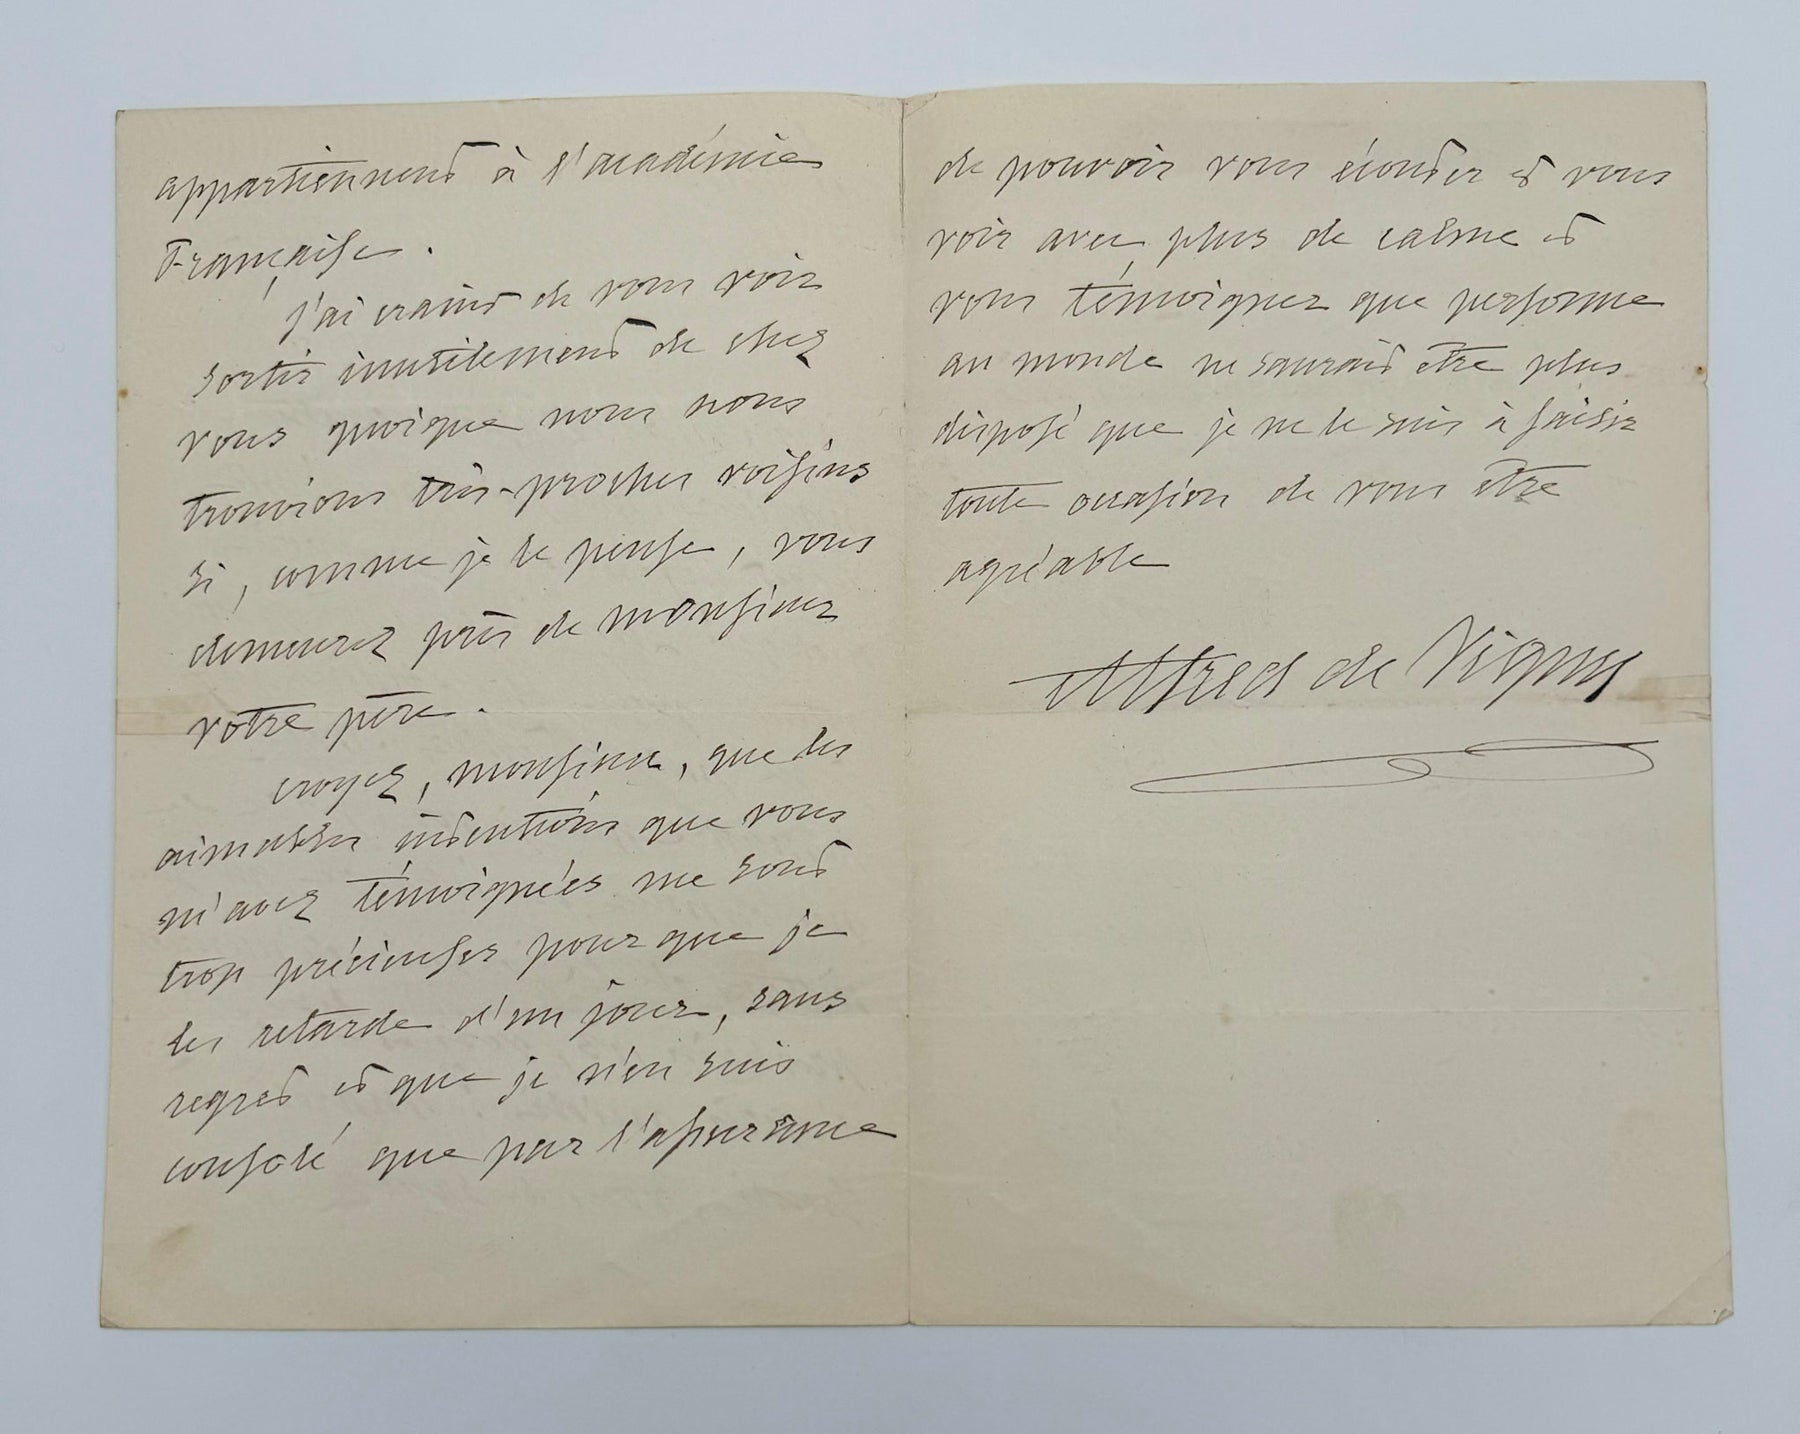 appartiennent à l'académie
Française.
j'ai craint de vous voir
sortir inutilement de chez
vous quoique nous nous
trouvions très-proches voisins
si, comme je le pense, vous
demeurez près de monsieur
votre père.
croyez, monsieur, que les
aimables intentions que vous
m'avez témoignées me sont
trop précieuses pour que je
les retarde d'un jour, sans
regret et que je n'en suis
consolé que par l'assurance
de pouvoir vous écouter et vous
voir avec plus de calme et
vous témoigner que personne
au monde ne saurait être plus
disposé que je ne le suis à saisir
toute occasion de vous être
agréable
Alfred de Vigny